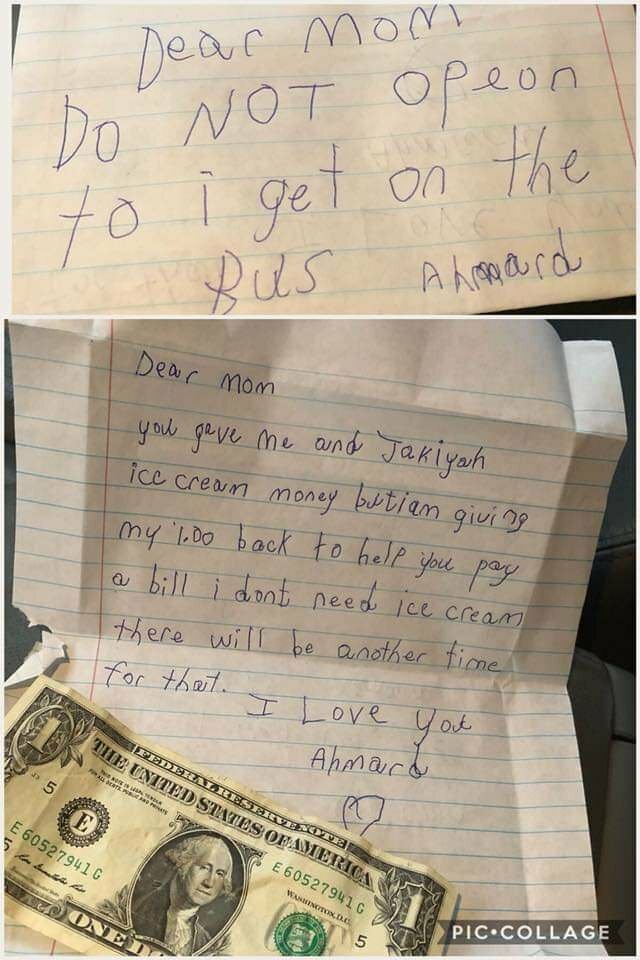 Dear Mom
Do NOT opeon
to i get on the
Bus Ahmard
Dear mom
you gave me and Jakiyah
ice cream money butiam giving
my 1.00 back to help you pay
a bill i dont need ice cream
there will be another time
for that. I Love you
Ahmard
FEDERAL RESERVE NOTE
THE UNITED STATES OF AMERICA
THIS NOTE IS LEGAL TENDER
FOR ALL DEBTS, PUBLIC AND PRIVATE
1
5
E
E 60527941 G
E 60527941 G
WASHINGTON, D.C.
5
5
1
ONE
PIC•COLLAGE